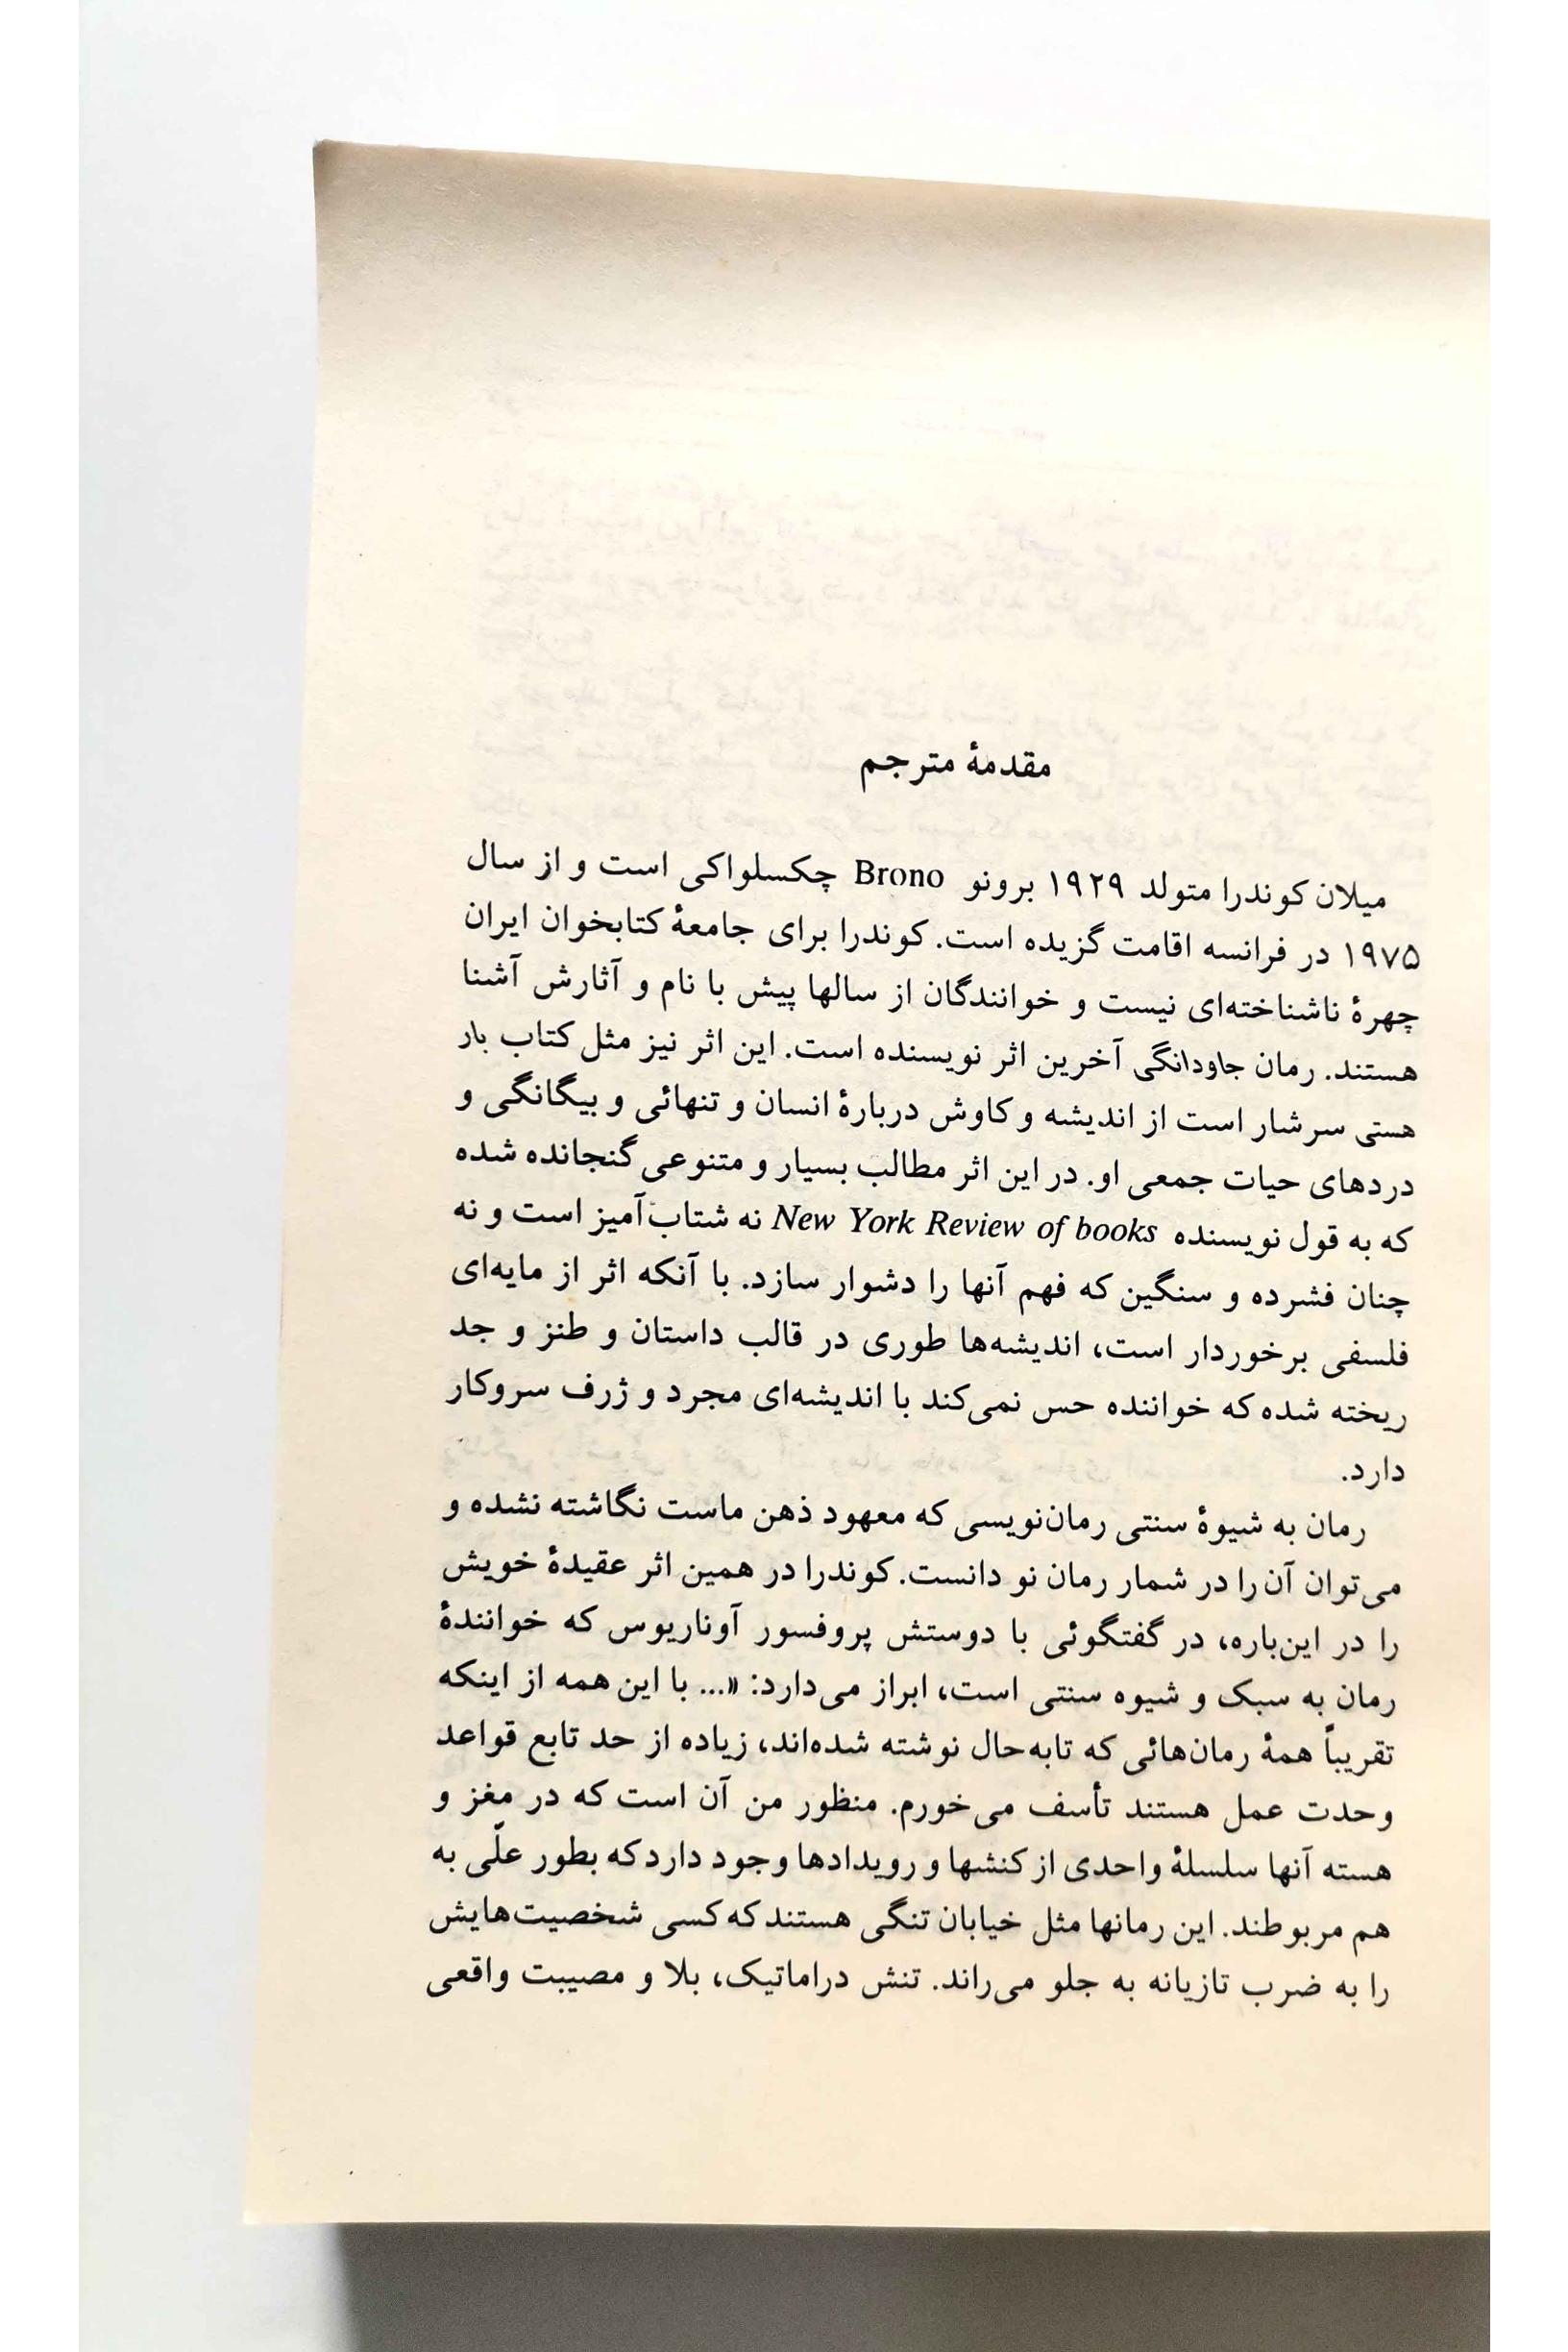 مقدمهٔ مترجم
میلان کوندرا متولد ۱۹۲۹ برونو Brono چکسلواکی است و از سال
۱۹۷۵ در فرانسه اقامت گزیده است. کوندرا برای جامعهٔ کتابخوان ایران
چهرهٔ ناشناخته‌ای نیست و خوانندگان از سالها پیش با نام و آثارش آشنا
هستند. رمان جاودانگی آخرین اثر نویسنده است. این اثر نیز مثل کتاب بار
هستی سرشار است از اندیشه و کاوش دربارهٔ انسان و تنهائی و بیگانگی و
دردهای حیات جمعی او. در این اثر مطالب بسیار و متنوعی گنجانده شده
که به قول نویسنده New York Review of books نه شتاب‌آمیز است و نه
چنان فشرده و سنگین که فهم آنها را دشوار سازد. با آنکه اثر از مایه‌ای
فلسفی برخوردار است، اندیشه‌ها طوری در قالب داستان و طنز و جد
ریخته شده که خواننده حس نمی‌کند با اندیشه‌ای مجرد و ژرف سروکار
دارد.
رمان به شیوهٔ سنتی رمان‌نویسی که معهود ذهن ماست نگاشته نشده و
می‌توان آن را در شمار رمان نو دانست. کوندرا در همین اثر عقیدهٔ خویش
را در این‌باره، در گفتگوئی با دوستش پروفسور آوناریوس که خوانندهٔ
رمان به سبک و شیوه سنتی است، ابراز می‌دارد: «... با این همه از اینکه
تقریباً همهٔ رمان‌هائی که تابه‌حال نوشته شده‌اند، زیاده از حد تابع قواعد
وحدت عمل هستند تأسف می‌خورم. منظور من آن است که در مغز و
هسته آنها سلسلهٔ واحدی از کنشها و رویدادها وجود دارد که بطور علّی به
هم مربوطند. این رمانها مثل خیابان تنگی هستند که کسی شخصیت‌هایش
را به ضرب تازیانه به جلو می‌راند. تنش دراماتیک، بلا و مصیبت واقعی